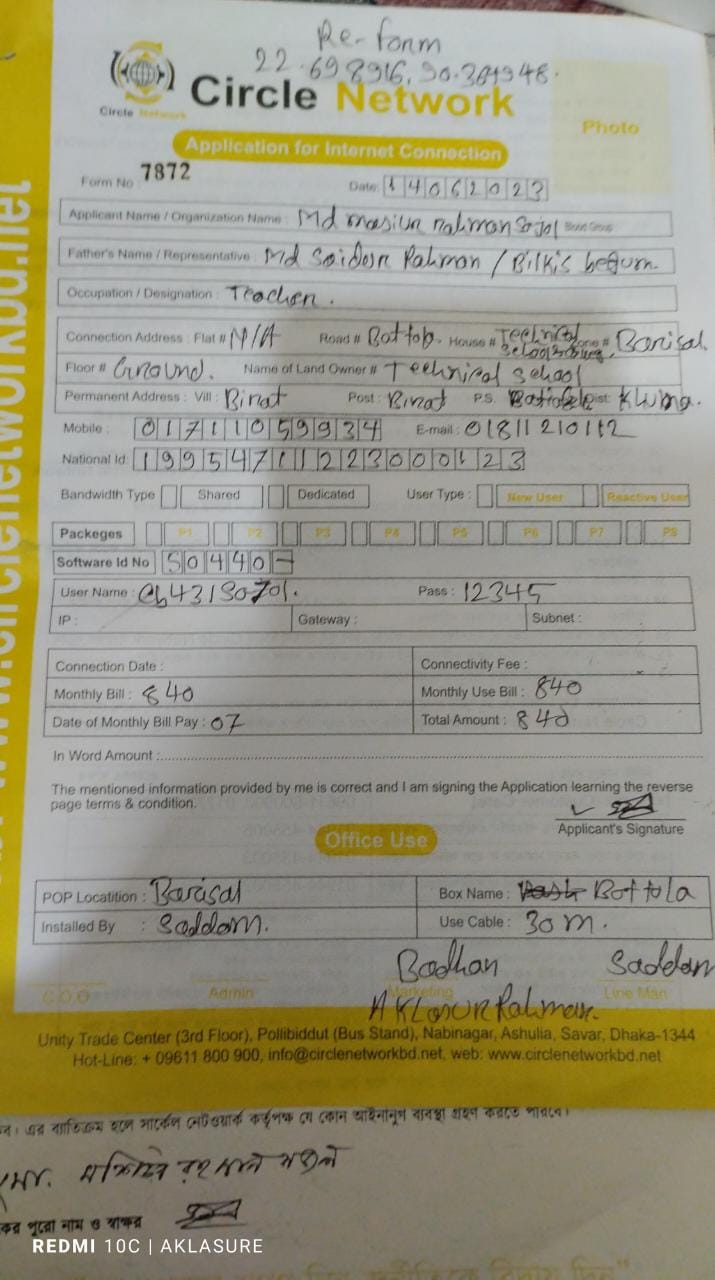 Re-form
22.698916, 90.3
Circle Network
Circle Network
Photo
Application for Internet Connection
Form No 7872
Date: 14062023
Applicant Name / Organization Name : Md masiur rahman Sojol Blood Group
Father's Name / Representative : Md Saidur Rahman / Bilkis begum.
Occupation / Designation : Teacher.
Connection Address : Flat # N/A Road # Bottob. House # Technical School Barisal.
Floor # Ground. Name of Land Owner # Technical School
Permanent Address : Vill : Birat Post : Birat P.S. Dist: Khulna.
Mobile : 01711059934 E-mail : 01811210112
National Id: 19954711223000123
Bandwidth Type Shared Dedicated User Type : New User Reactive User
Packeges P1 P2 P3 P4 P5 P6 P7 P8
Software Id No 50440-
User Name : Pass : 12345
IP : Gateway : Subnet :
Connection Date : Connectivity Fee :
Monthly Bill : 840 Monthly Use Bill : 840
Date of Monthly Bill Pay : 07 Total Amount : 840
In Word Amount :
The mentioned information provided by me is correct and I am signing the Application learning the reverse
page terms & condition.
Applicant's Signature
Office Use
POP Locatition : Barisal Box Name : Bottola
Installed By : Saddam. Use Cable : 30 m.
Badhan Saddam
C.O.O Admin Marketing Line Man
AKLasur Rahman.
Unity Trade Center (3rd Floor), Pollibiddut (Bus Stand), Nabinagar, Ashulia, Savar, Dhaka-1344
Hot-Line: + 09611 800 900, info@circlenetworkbd.net, web: www.circlenetworkbd.net
www.circlenetworkbd.net
এর ব্যতিক্রম হলে সার্কেল নেটওয়ার্ক কর্তৃপক্ষ যে কোন আইনানুগ ব্যবস্থা গ্রহণ করতে পারবে।
পুরো নাম ও স্বাক্ষর
REDMI 10C | AKLASURE